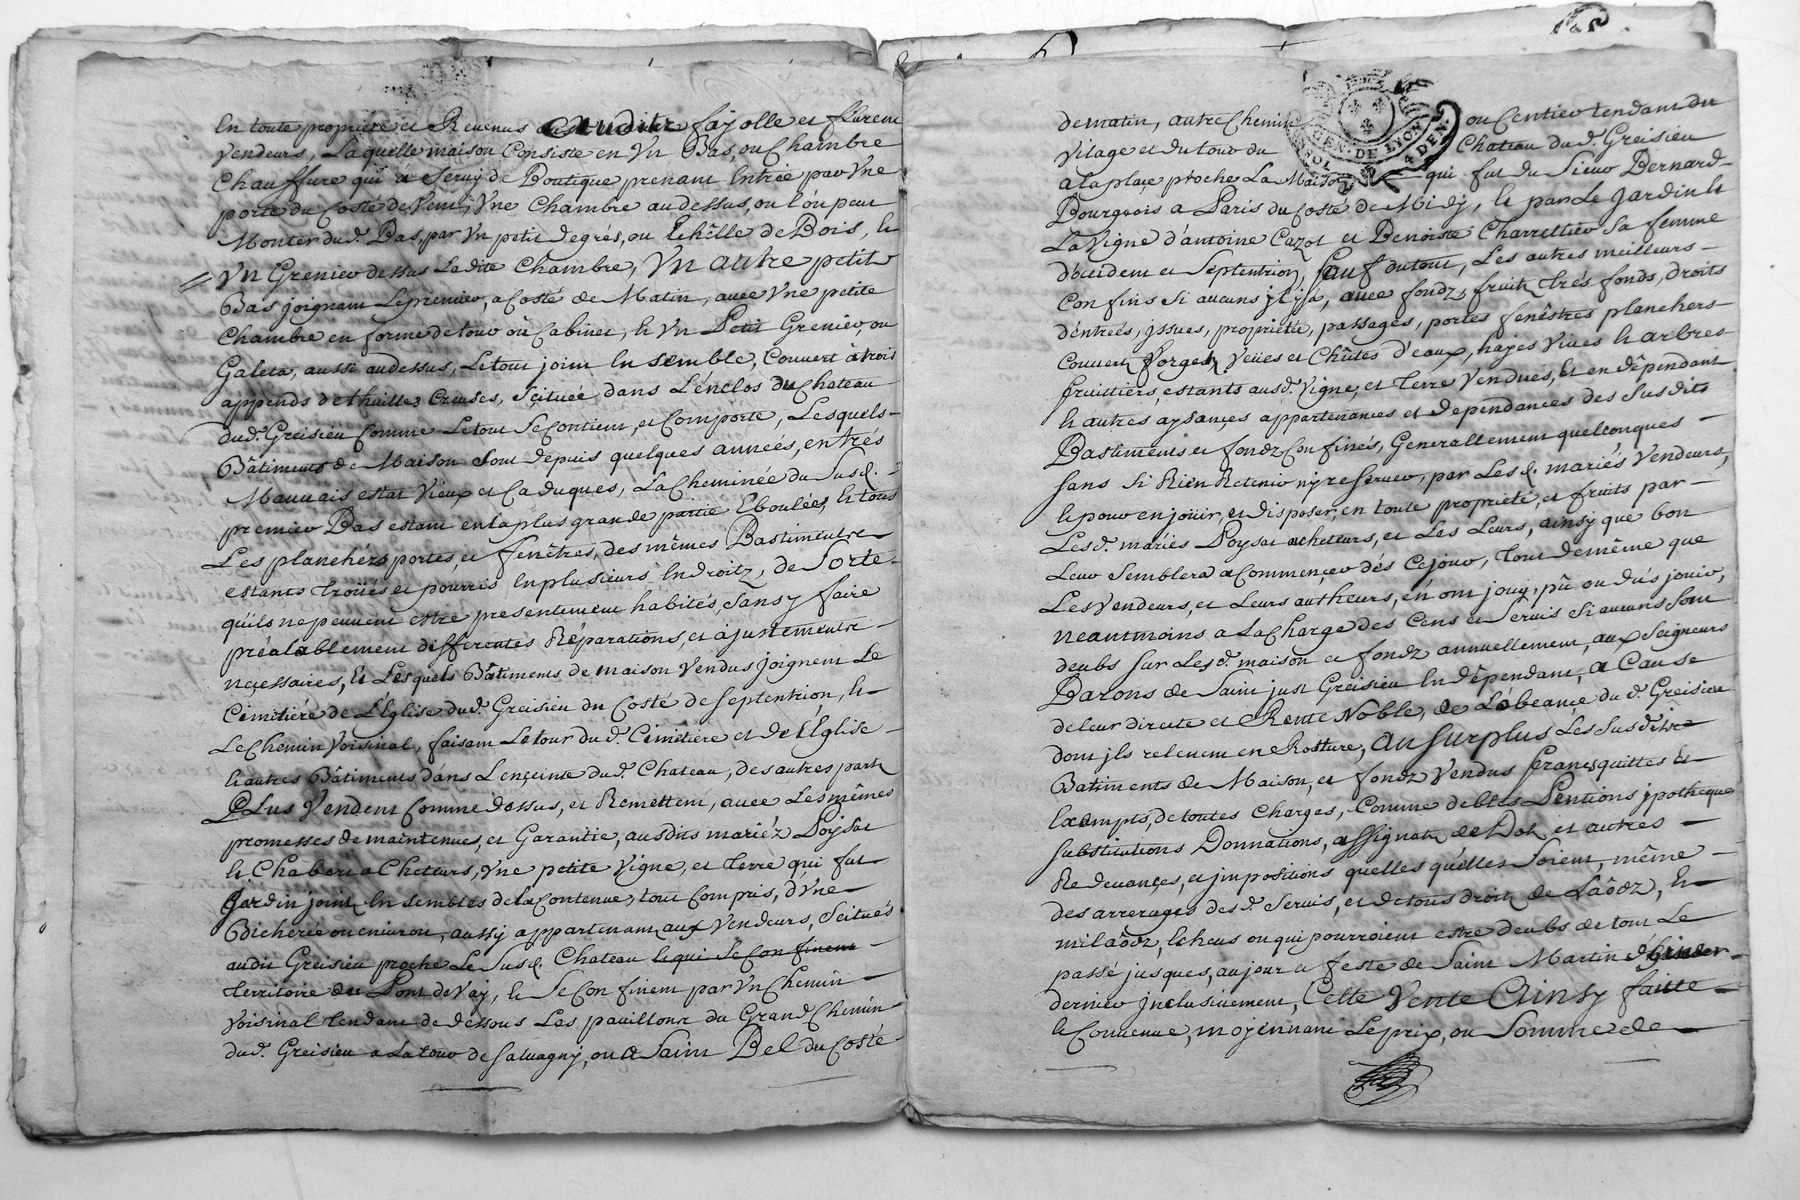 En toute proprieté et Revenus Auditz fayolle et flurenu
Vendeurs, Laquelle maison Consiste en Vn Bas, ou Chambre
Chauffure qui a Servy de Boutique prenant Entrée par Vne
porte du Costé de Vent, Vne Chambre au dessus, ou l'on peut
Monter dud. Bas, par Vn petit degrés, ou Echêlle de Bois, Et
Vn Grenier dessus Ladite Chambre, Vn autre petit
Bas joignant Le premier, a Costé de Matin, avec Vne petite
Chambre en forme de tour où Cabinet, Et Vn Petit Grenier, ou
Galeta, aussi au dessus, Le tout joint En semble, Couvert à trois
appends de thuilles Creuses, Scituée dans L'énclos du Chateau
dud. Greisieu Comme Le tout Se Contient, et Comporte, Lesquels
Bâtiments de Maison Sont depuis quelques années, en trés
Mauvais estat Vieux et Caduques, La Cheminée du Susd.
premier Bas estant en la plus grande partie Eboulée, Et tous
Les planchérs portes, et fenêtres, des mêmes Bastiments
estants Troüés et pourris En plusieurs Endroitz, de Sorte
qu'ils ne peuvent estre presentement habités, Sans y faire
préalablement differentes Réparations, et ajustements
neçessaires, Et Lesquels Bâtiments de maison Vendus joignent Le
Cimitiére de L'Églize dud. Greisieu du Costé de Septentrion, Et
Le Chemin Voisinal, faisant Le tour dud. Cimitiere et de l'Église
Et autres Bâtiments dans L'ençeinte dud. Chateau, des autres partz
Plus Vendent Comme dessus, et Remettent, avec Les mêmes
promesses de maintenues, et Garantie, ausdits mariéz Poysat
Et Chabert acheteurs, Vne petite Vigne, et Terre qui fut
Jardin joint En sembles de la Contenue, tout Compris, d'Vne
Bicherée ou environ, aussy appartenant aux Vendeurs, Scitués
audit Greisieu proche Le Susd. Chateau Et qui Se Confinent
Territoire des Pont de Vay, Et Se Confinent par Vn Chemin
Voisinal Tendant de dessous Les pavillons du Grand Chemin
dud. Greisieu a La tour de Salvagny, ou a Saint Bel du Costé
de matin, autre Chemin ou Sentier tendant du
Vilage et du tour du Chateau dud. Greisieu
a la plaçe proche La Maison qui fut du Sieur Bernard
Bourgeois a Paris du Costé de Midy, Et par Le Jardin Et
La Vigne d'antoine Cazot et Benoiste Charrettier Sa femme
d'occident et Septentrion, Sauf du tout, Les autres meilleurs
Confins Si aucuns jl y a, avec fondz, fruitz Trés fonds, droits
d'entrées, jssues, proprieté, passages, portes fenêstres planchers
Couvert Forgetz, Veües et Chûtes d'eaux, hayes Vives Et arbres
fruittiers, estants ausd. Vigne, et Terre Vendues, Et en dêpendant
Et autres aysançes appartenances et dependances des Susdits
Bastiments et fondz Confinés, Generallement quelconques
Sans Si Rien Retenir ny reServer, par Lesd. mariés Vendeurs,
Et pour en joüir, et disposer, en toute proprieté, et fruits par
Lesd. mariés Poysat acheteurs, et Les Leurs, ainsy que bon
Leur Semblera a Commençer dés Ce jour, Tout de même que
Les Vendeurs, et Leurs autheurs, én ont jouy, pû ou deüs jouir,
neantmoins a La Charge des Cens et Servis Si aucuns Sont
deubs Sur Lesd. maison et fondz annuellement, aux Seigneurs
Barons de Saint just Greisieu En dêpendant, a Cause
de leur directe et Rente Noble, de L'obeançe dud. Greisieu
dont jls relevent en Rotture, Au Surplus Les Susdits
Batiments de Maison, et fondz Vendus francs, quittes Et
Exempts, de toutes Charges, Comme debtes Pentions jpotheques
Substitutions Donnations, assignatz de Dot, et autres
Redevançes, et jmpositions quelles qu'elles Soient, même
des arrerages desd. Servis, et de tous droitz de Laôdz, Et
milaôdz, Echeus ou qui pourroient estre deubs de tout Le
passé jusques, au jour et feste de Saint Martin d'hiver
dernier Jnclusivement, Cette Vente Ainsy faitte
Et Convenue, moyennant Le prix, ou Somme de
GEN. DE LION
4 DEN.